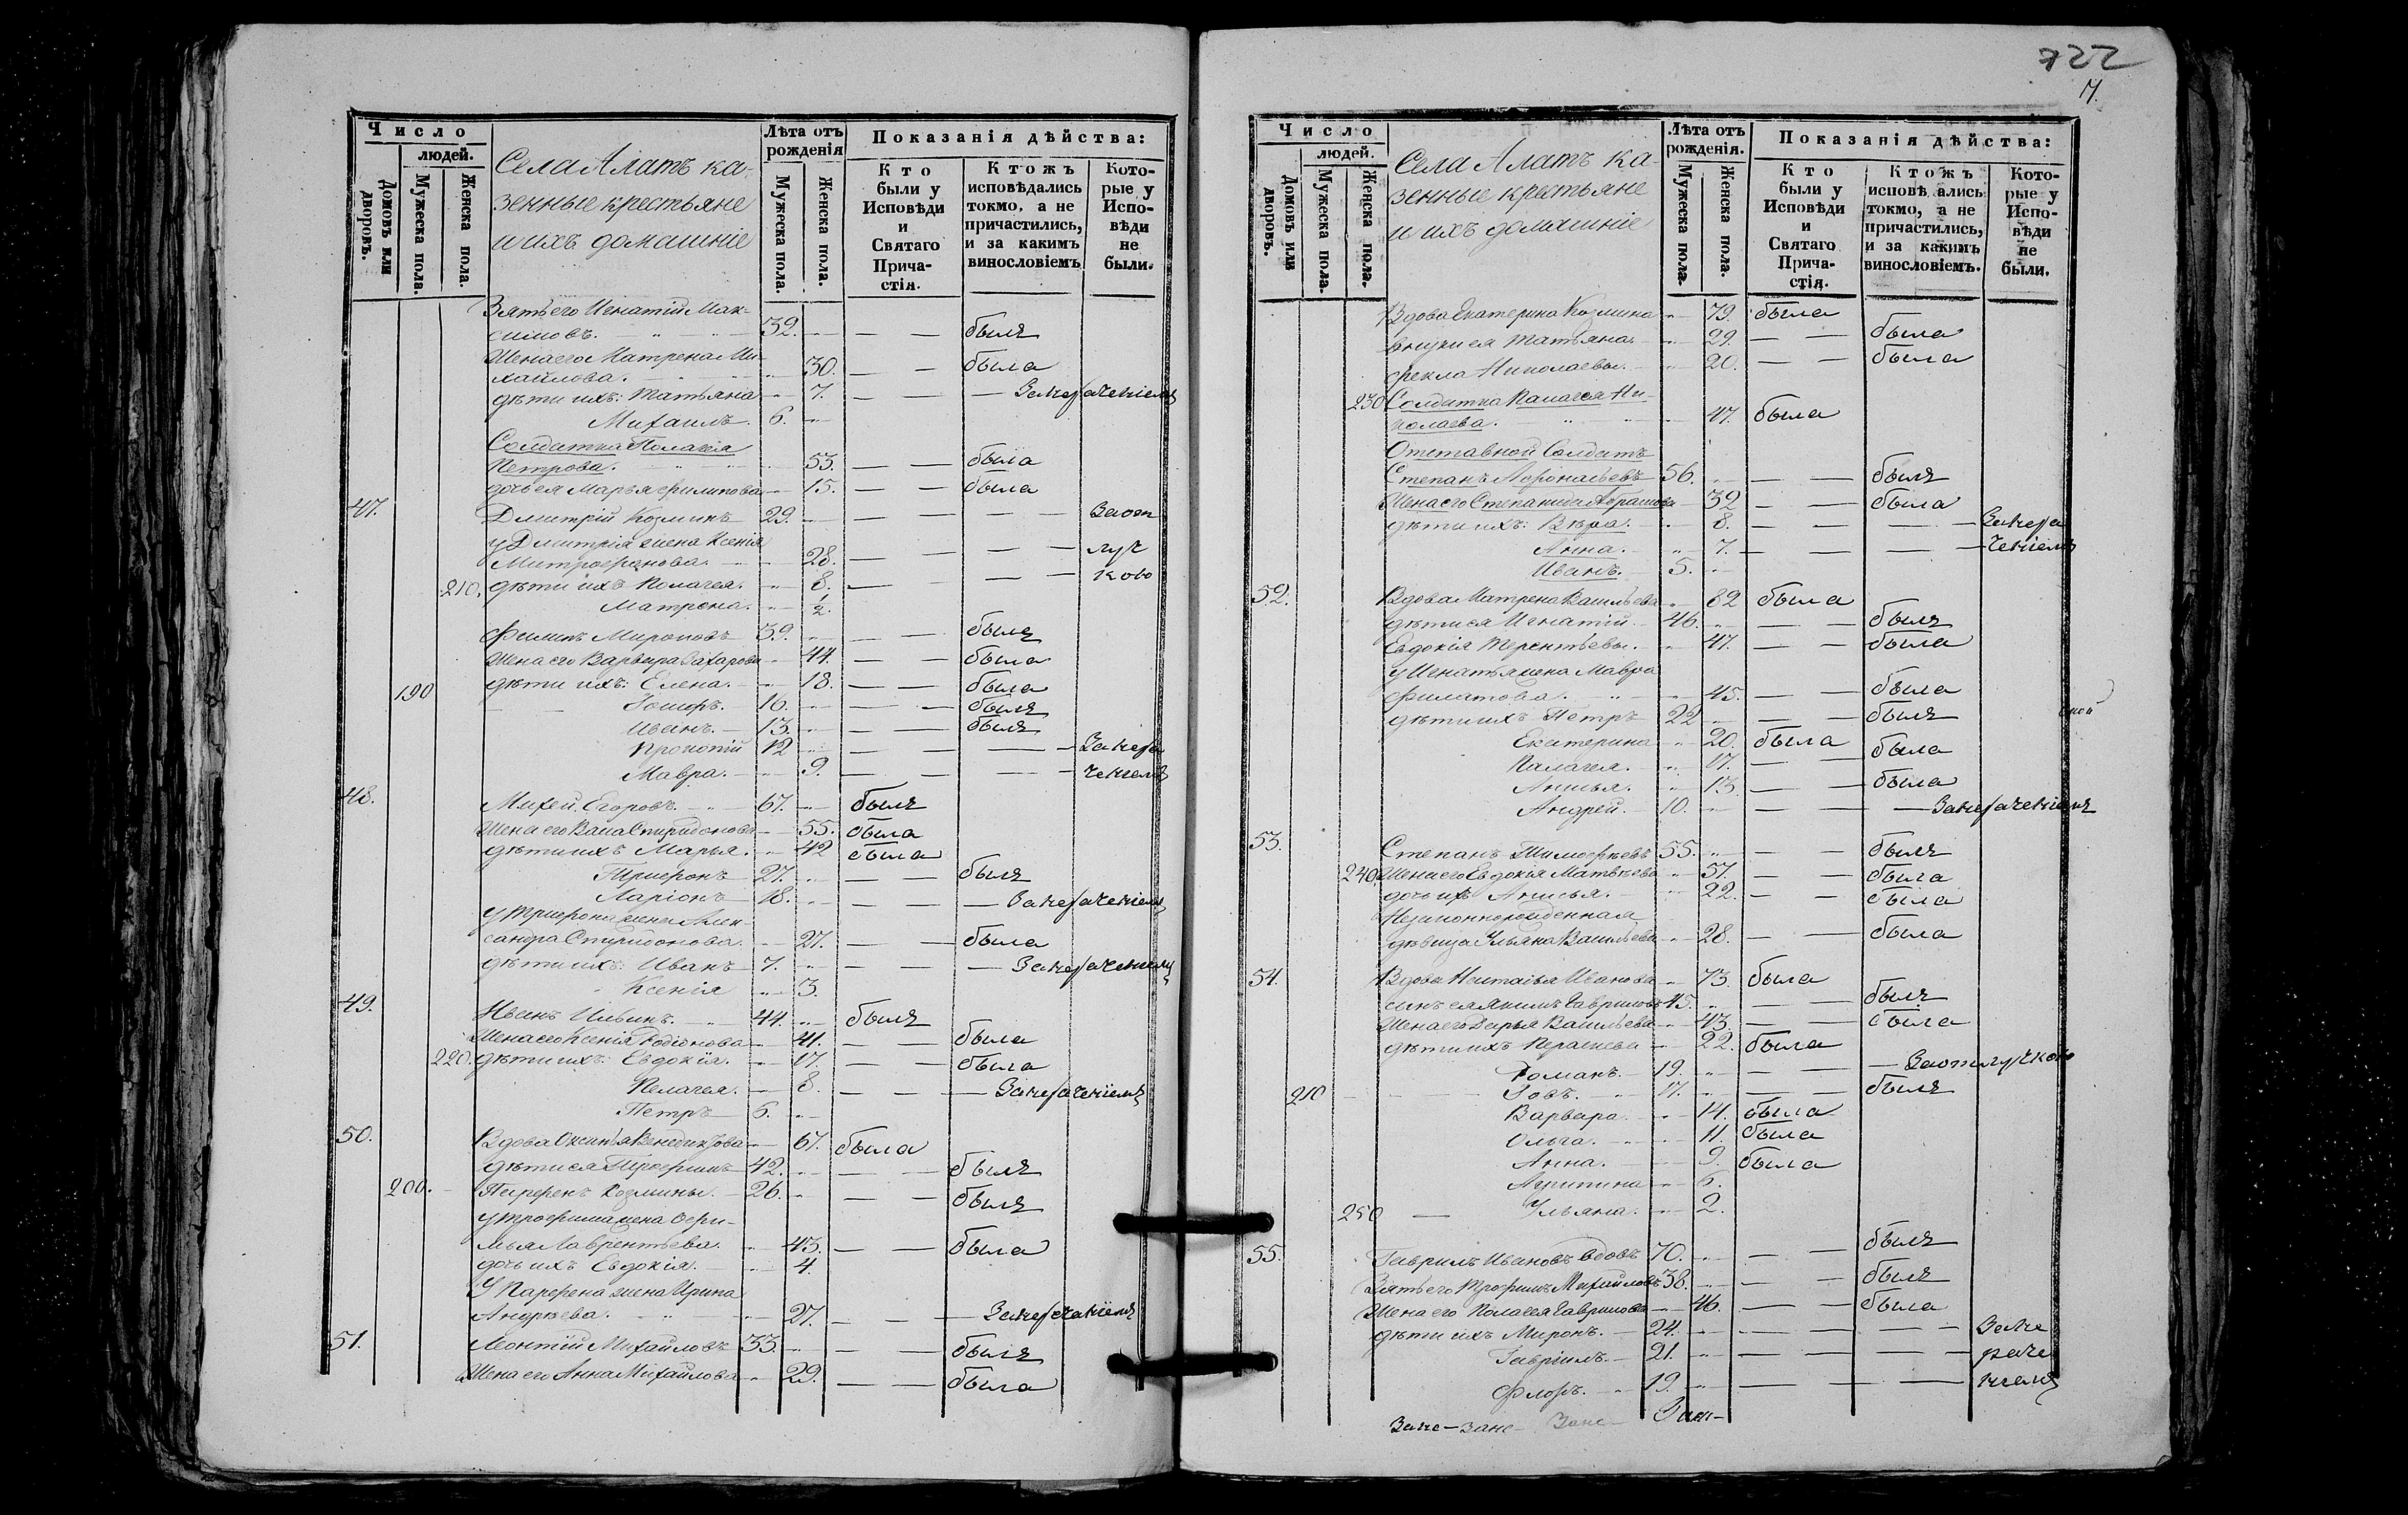 Число
людей.
Домовъ или дворовъ.
Мужеска пола.
Женска пола.
Села Алатъ ка-
зенные крестьяне
и ихъ домашніе
Лѣта отъ рожденія
Мужеска пола.
Женска пола.
Показанія дѣйства:
Кто были у Исповѣди и Святаго Прича-стія.
Ктожъ исповѣдались токмо, а не причастились, и за какимъ винословіемъ
Кото-рые у Испо-вѣди не были.
Зять его Игнатій Мак-
симовъ. 32. — — былъ
Жена его Матрена Ми-
хайлова. 30. — — была
дѣти ихъ: Татьяна 7. — — — За нераченіемъ
Михаилъ. 6.
Солдатка Пелагея
Петрова. 53. — — была
дочь ея Марья Филипова 15. — — была
47. Дмитрій Козминъ 29. — — — — Заот
у Дмитрія жена Ксенія
Митрофанова. 28. — — — — луч
210. дѣти ихъ Полагея. 8. — — — ково
Матрона. 1/2.
Филипъ Мироновъ 39. — — былъ
Жена его Варвара Захарова 44. — — была
190 дѣти ихъ: Елена. 18. — — была
16. — — былъ
Иванъ. 13. — — былъ
Прокопій 12 — — — — За нера
Мавра. 9. — — — ченіемъ
48. Михей Егоровъ. 67. былъ
Жена его Васа Спиридонова 55. была
дѣти ихъ Марья. 42 была
Трифонъ 27. — — былъ
Ларіонъ 18. — — — За нераченіемъ
у Трифона жена Алек-
сандра Спиридонова. 27. — — была
дѣти ихъ: Иванъ 7. — — — За нераченіемъ
Ксенія 3.
49. Иванъ Ильинъ. 44. былъ
Жена его Ксенія Родіонова 41. — — была
220. дѣти ихъ: Евдокія. 17. — — была
Пелагея. 8. — — — За нераченіемъ
Петръ 6.
50. Вдова Оксинья Венедиктова 67. была
дѣти ея Трофимъ 42. — — былъ
200. Парфенъ Козмины. 26. — — былъ
у Трофима жена Офи-
мья Лаврентьева. 43. — — была
дочь ихъ Евдокія. 4.
У Парфена жена Ирина
Андрѣева. 27. — — — За нераченіемъ
51. Леонтій Михайловъ 33. — — былъ
Жена его Анна Михайлова 29. — — была
722
7.
Число
людей.
Домовъ или дворовъ.
Мужеска пола.
Женска пола.
Села Алатъ ка-
зенные крестьяне
и ихъ домашніе
Лѣта отъ рожденія.
Мужеска пола.
Женска пола.
Показанія дѣйства:
Кто были у Исповѣди и Святаго Прича-стія.
Ктожъ исповѣ ались токмо, а не причастились, и за какимъ винословіемъ.
Кото-рые у Испо-вѣди не были.
Вдова Екатерина Козмина 79. была
внуки ея Татьяна. 29. — — была
Фекла Николаевы. 20. — — была
230 Солдатка Палагея Ни-
колаева. 47. была
Отставной Солдатъ
Степанъ Афонасьевъ 56. — — былъ
Жена его Степанида Абрамова 32 — — была
дѣти ихъ: Вѣра. 8. — — — За нера
Анна. 7. — — — ченіемъ
Иванъ. 5.
52. Вдова Матрена Васильева 82 была
дѣти ея Игнатій 46. — — былъ
Евдокія Терентьевы. 47. — — была
у Игнатья жена Мавра
Филатова. 45. — — была
дѣти ихъ Петръ 22 — — былъ
Екатерина 20. была
Палагея. 17. — — была
Анисья. 13. — — была
Андрей. 10. — — — За нераченіемъ
53. Степанъ Тимофѣевъ 55. — — былъ
240. Жена его Евдокія Матвѣева 57. — — была
дочь ихъ Анисья. 22. — — была
Незаконнорожденная
дѣвица Ульяна Васильева 28. — — была
54. Вдова Наталья Иванова 73. была
сынъ ея Якимъ Гавриловъ 45. — — былъ
Жена его Дарья Васильева 43. — — была
дѣти ихъ 22. была
Романъ. 19. — — — Заотлучкою
210 Іовъ. 17. — — былъ
Варвара. 14. была
Ольга. 11. была
Анна. 9. была
Агрипина 6.
250 Ульяна. 2.
55. Гаврилъ Ивановъ вдовъ 70. — — былъ
Зять его Трофимъ Михайловъ 38. — — былъ
Жена его Полагея Гаврилова 46. — — была
дѣти ихъ Миронъ. 24. — — — За не
Гавріилъ. 21. — — — раче
Флоръ. 19. — — — ніемъ
Зане— зане— Зане—